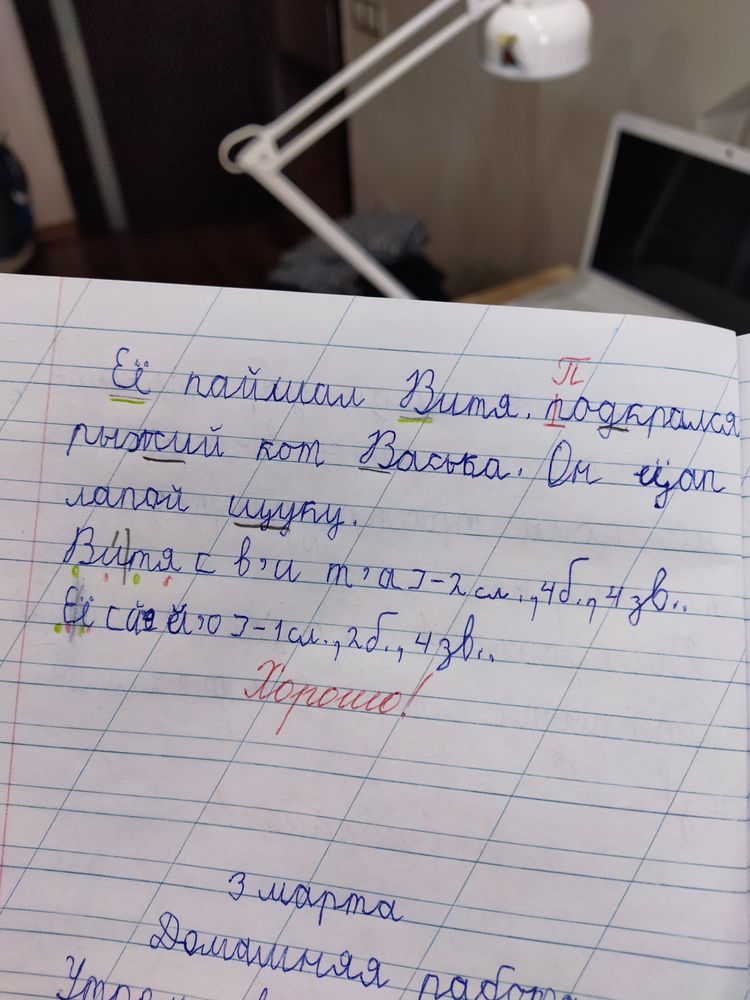 П
Её паймал Витя. подкрался
рыжий кот Васька. Он цап
лапой щуку.
Витя [ в, и т, а ] - 2 сл., 4 б., 4 зв..
Её [ й, о ] - 1 сл., 2 б., 4 зв..
Хорошо!
3 марта
Домашняя работа